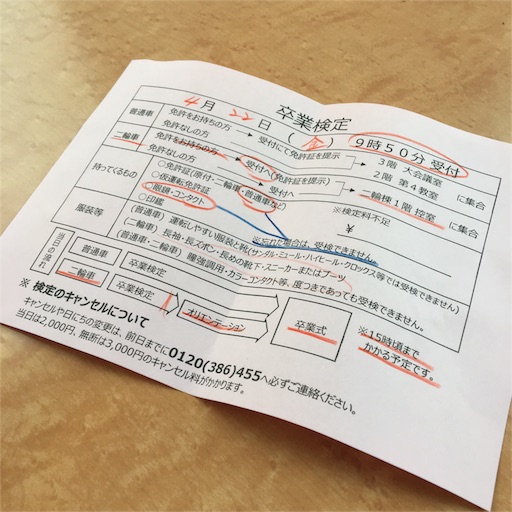 卒業検定
4月22日(金) 9時50分 受付
普通車 免許をお持ちの方 受付にて免許証を提示 3階 大会議室 に集合
免許なしの方 2階 第4教室
二輪車 免許をお持ちの方 受付へ(免許証を提示) 二輪棟1階 控室 に集合
免許なしの方 受付へ
持ってくるもの ○免許証(原付・二輪車・普通車など) ※検定料不足
○仮運転免許証 ¥
○眼鏡・コンタクト
○印鑑 ※忘れた場合は、受検できません。
服装等 (普通車) 運転しやすい服装と靴(サンダル・ミュール・ハイヒール・クロックス等では受検できません)
(二輪車) 長袖・長ズボン・長めの靴下・スニーカーまたはブーツ
(普通車・二輪車) 瞳強調用・カラーコンタクト等、度つきであっても受検できません。
当日の流れ
普通車 卒業検定
二輪車 卒業検定 オリエンテーション 卒業式 ※15時頃まで
かかる予定です。
※ 検定のキャンセルについて
キャンセルや日にちの変更は、前日までに0120(386)455へ必ずご連絡ください。
当日は2,000円、無断は3,000円のキャンセル料がかかります。